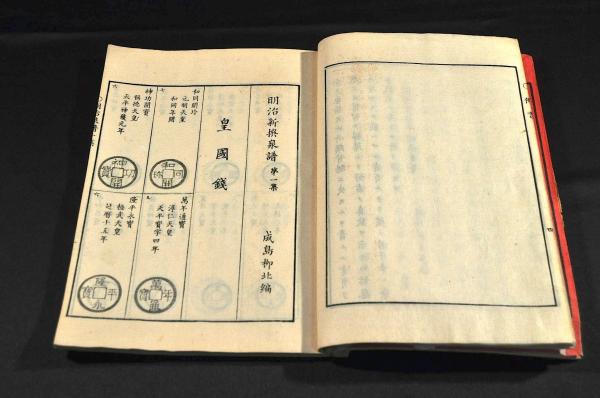 四
明治新撰泉譜 第一集
成島柳北編
皇國錢
和同開珎
元明天皇
和同年間
和同開珎
萬年通寶
淳仁天皇
天平寶字四年
萬年通寶
神功開寶
稱德天皇
天平神護元年
神功開寶
隆平永寶
桓武天皇
延暦十五年
隆平永寶